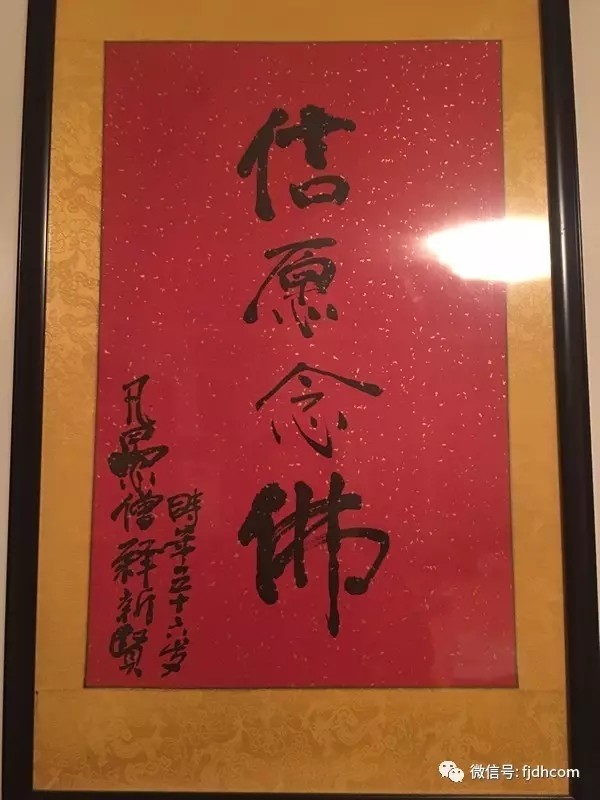 信愿念佛
凡愚僧释新贤
时年五十六岁
微信号: fjdhcom